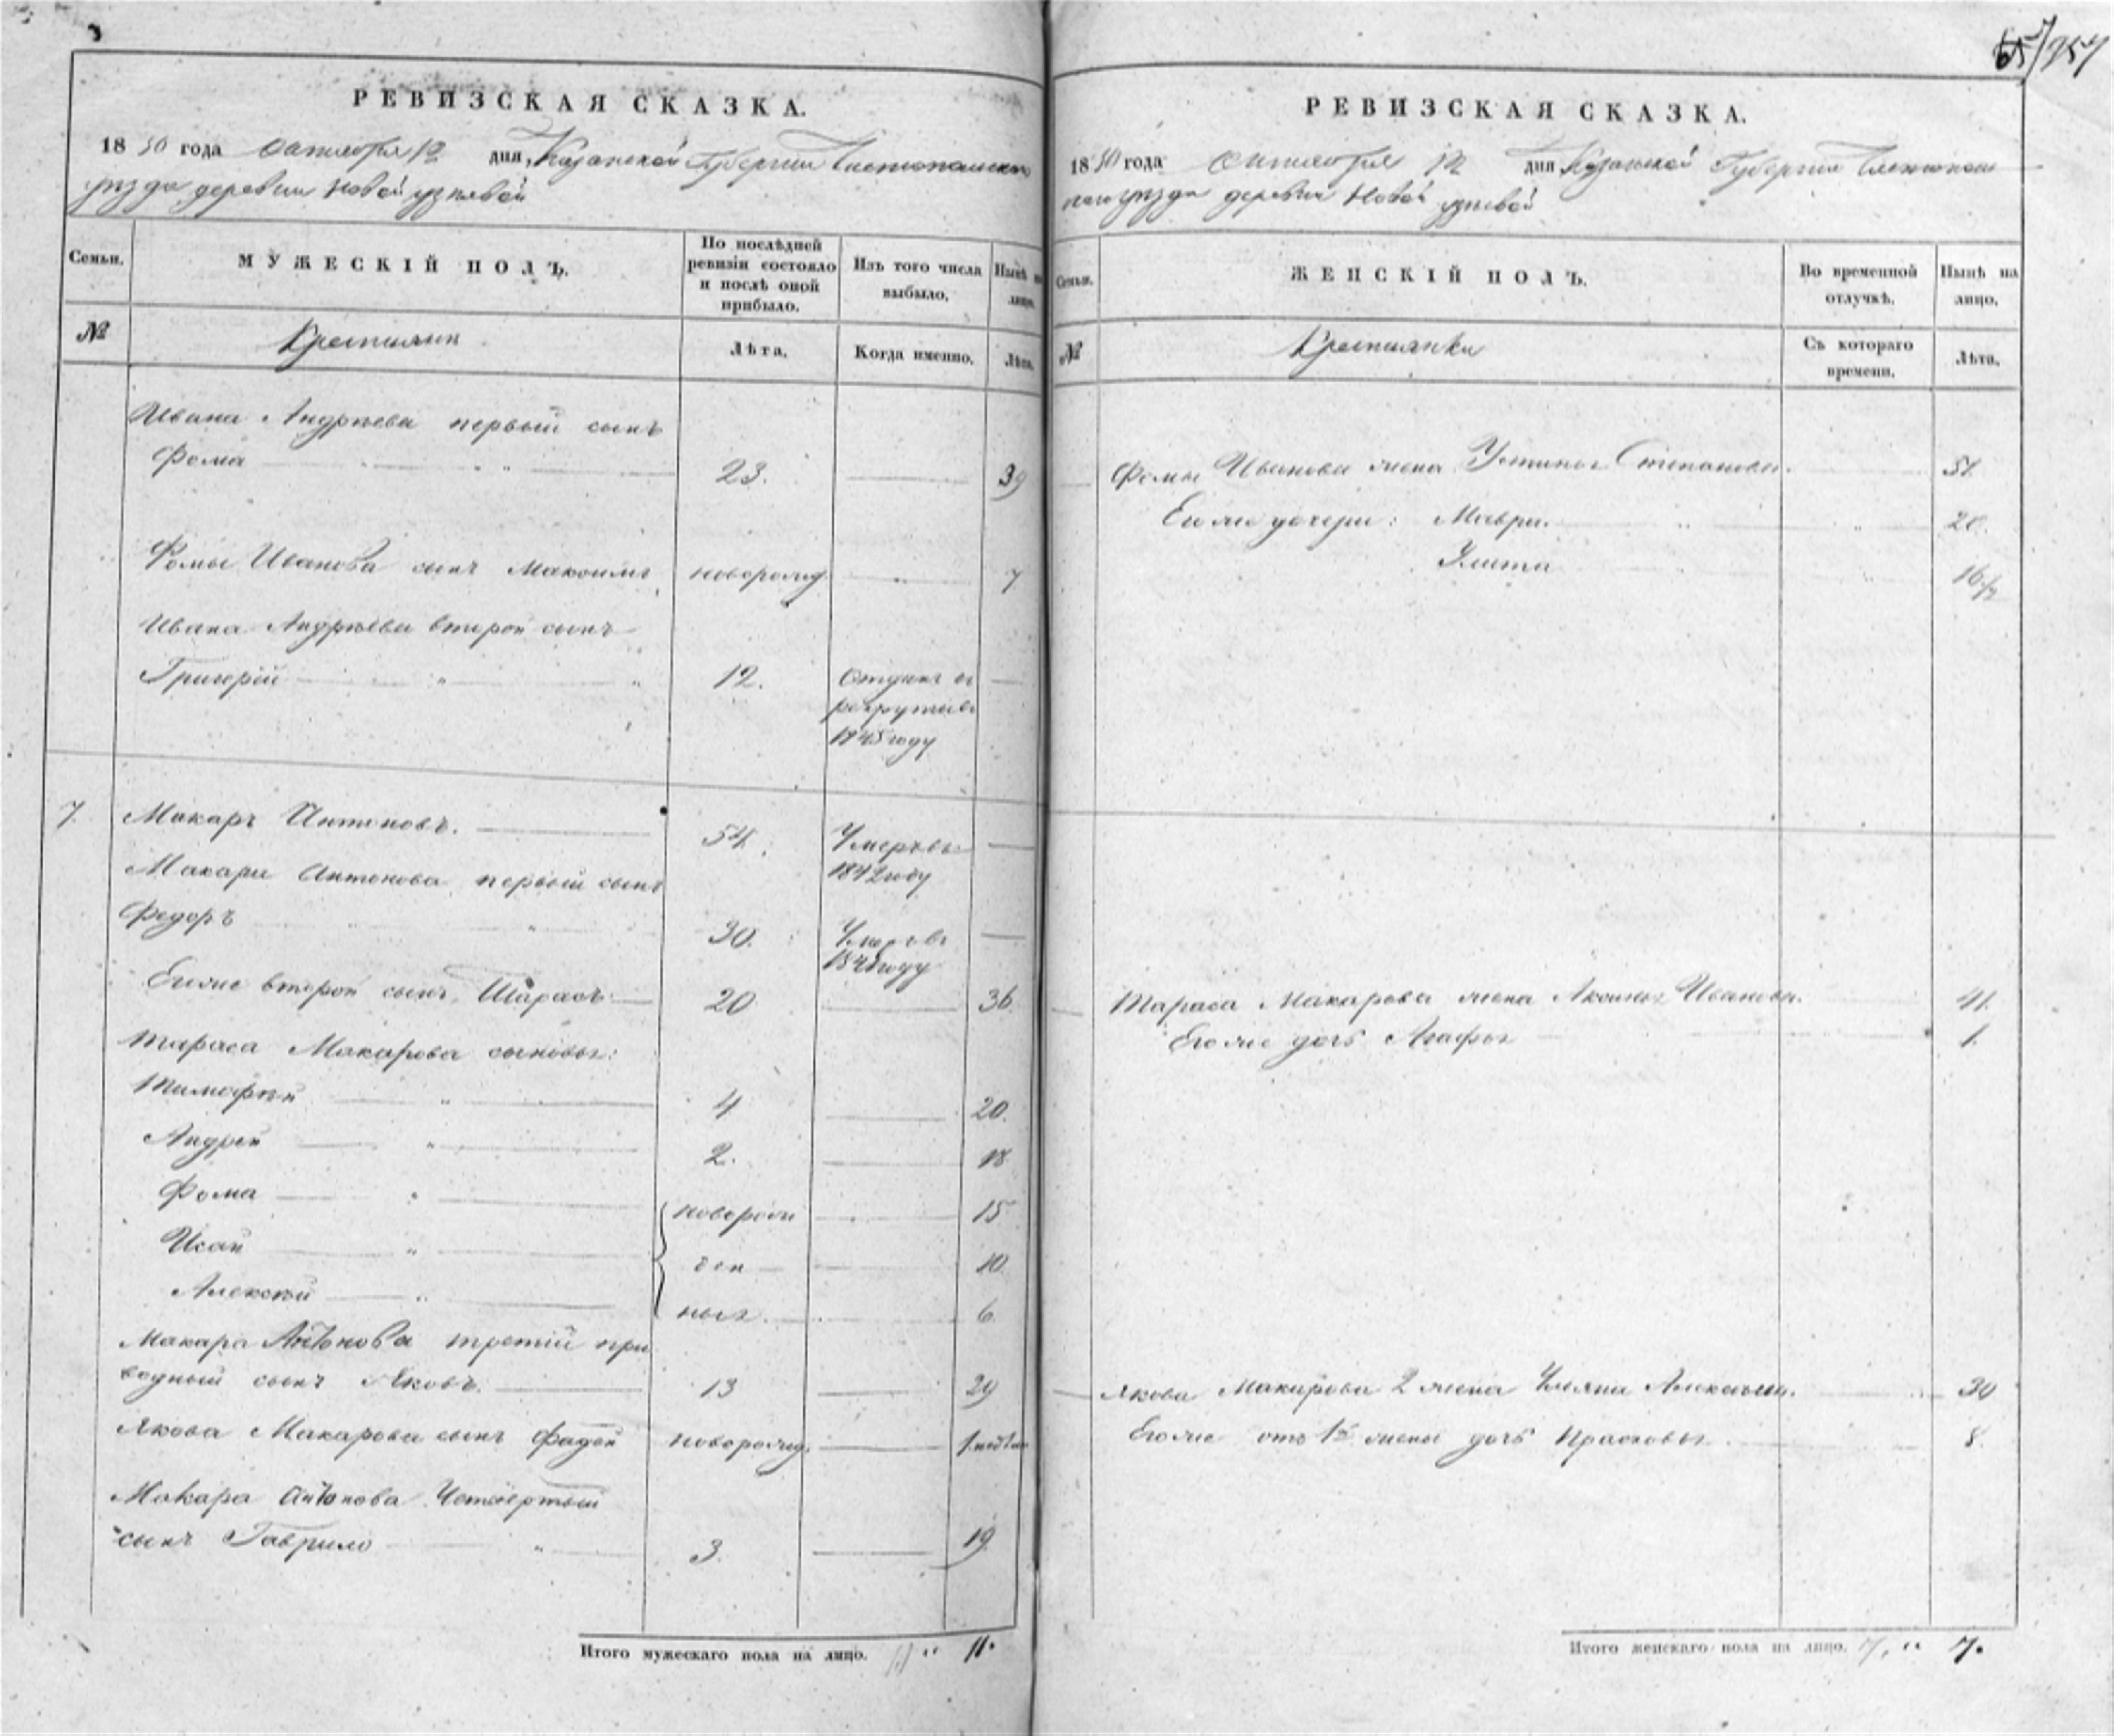 3
РЕВИЗСКАЯ СКАЗКА.
1850 года Октября 12 дня, Казанской Губернии Чистопольскаго
уѣзда деревни Новой
Семьи.
МУЖЕСКІЙ ПОЛЪ.
По послѣдней ревизіи состояло и послѣ оной прибыло.
Изъ того числа выбыло,
Нынѣ на лицо.
№
Крестьяне
Лѣта.
Когда именно.
Лѣта.
Ивана Андрѣева первый сынъ
Фома 23. 39
Фомы Иванова сынъ Максимъ новорожд. 7
Ивана Андрѣева второй сынъ
Григорій 12. Отданъ въ
рекруты въ
1845 году
7. Макаръ Антоновъ. 54. Умеръ въ
1842 году
Макара Антонова первый сынъ
Федоръ 30. Умеръ въ
году
Егоже второй сынъ Тарасъ 20 36.
Тараса Макарова сыновья:
Тимофѣй 4 20.
Андрей 2. 18
Фома новорож 15
Исай ден 10.
Алексѣй ныя 6.
Макара Антонова третій при
водный сынъ Яковъ. 13 29
Якова Макарова сынъ Фадей новорожд.
Макара Антонова Четвертый
сынъ Гаврило 3. 19
Итого мужескаго пола на лицо. 11 " 11.
257
РЕВИЗСКАЯ СКАЗКА.
1850 года Октября 12 дня Казанской Губернии Чистополь
скаго уѣзда деревни Новой
Семьи.
ЖЕНСКІЙ ПОЛЪ.
Во временной отлучкѣ.
Нынѣ на лицо.
№
Крестьянки
Съ котораго времени.
Лѣта.
Фомы Иванова жена Устинья Степанова.
Его же дочери: Мавра. 20.
Улита 16 1/2
Тараса Макарова жена Аксинья Иванова. 41.
Егоже дочь Агафья 1.
Якова Макарова 2 жена Ульяна Алексѣева. 30
Егоже отъ 1й жены дочь Прасковья 8.
Итого женскаго пола на лицо. 7. " 7.